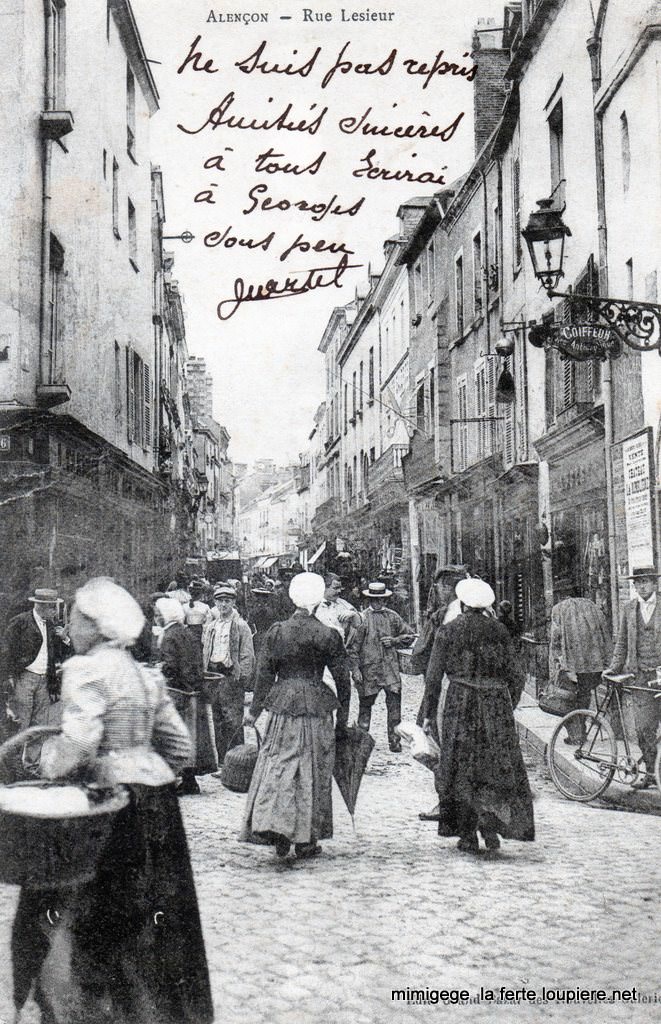 ALENÇON – RUE LESIEUR
ne suis pas repris
Amitiés sincères
à tous Ecrirai
à Georges
sous peu
COIFFEUR
VENTE
6
mimigege la ferte loupiere.net
Bazar des Nouvelles Galeries